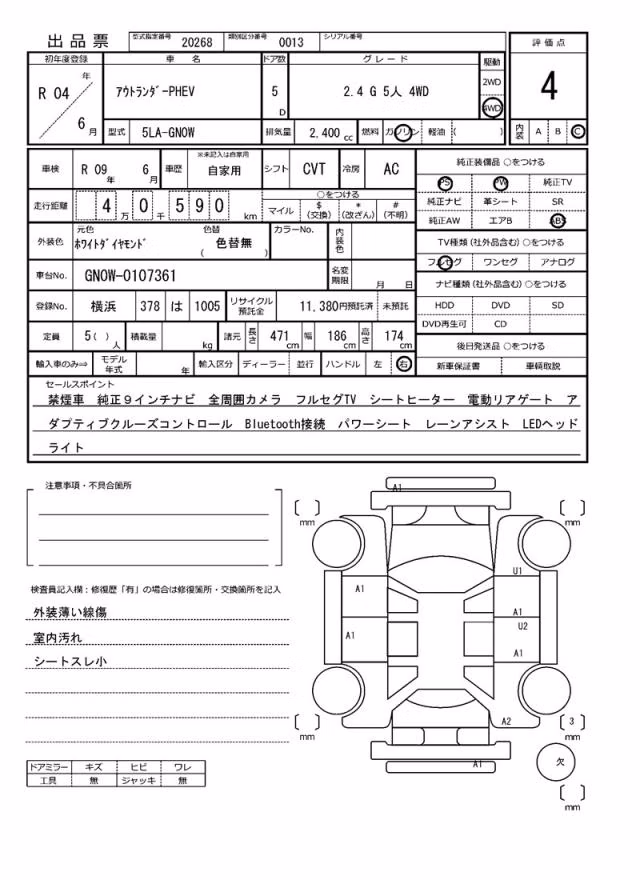 出品票 型式指定番号 20268 類別区分番号 0013 シリアル番号
評価点
4
内装 A B C
初年度登録 車名 ドア数 グレード 駆動
R 04 年 6 月
アウトランダ-PHEV 5 D 2.4 G 5人 4WD 2WD 4WD
型式 5LA-GN0W 排気量 2,400 cc 燃料 ガソリン 軽油 ( )
車検 R 09 年 6 月 車歴 ※未記入は自家用 自家用 シフト CVT 冷房 AC
走行距離 4 万 0 千 5 9 0 km
○をつける
マイル $(交換) *(改ざん) #(不明)
外装色 元色 ホワイトダイヤモンド 色替 色替無 ( ) カラーNo. 内装色
車台No. GN0W-0107361 名変期限 月 日
登録No. 横浜 378 は 1005 リサイクル預託金 11,380円預託済 未預託
定員 5( )人 積載量 kg 諸元 長さ 471 cm 幅 186 cm 高さ 174 cm
輸入車のみ⇒ モデル年式 年 輸入区分 ディーラー 並行 ハンドル 左 右
純正装備品 ○をつける
PS PW 純正TV
純正ナビ 革シート SR
純正AW エアB ABS
TV種類(社外品含む)○をつける
フルセグ ワンセグ アナログ
ナビ種類(社外品含む)○をつける
HDD DVD SD
DVD再生可 CD
後日発送品 ○をつける
新車保証書 車輌取説
セールスポイント
禁煙車 純正9インチナビ 全周囲カメラ フルセグTV シートヒーター 電動リアゲート ア
ダプティブクルーズコントロール Bluetooth接続 パワーシート レーンアシスト LEDヘッド
ライト
注意事項・不具合箇所
検査員記入欄:修復歴「有」の場合は修復箇所・交換箇所を記入
外装薄い線傷
室内汚れ
シートスレ小
ドアミラー キズ ヒビ ワレ
工具 無 ジャッキ 無
A1
[ ] mm
[ ] mm
U1
A1
A1
U2
A1
A1
A2
[ ] mm
[ 3 ] mm
A1
欠
[ ] mm